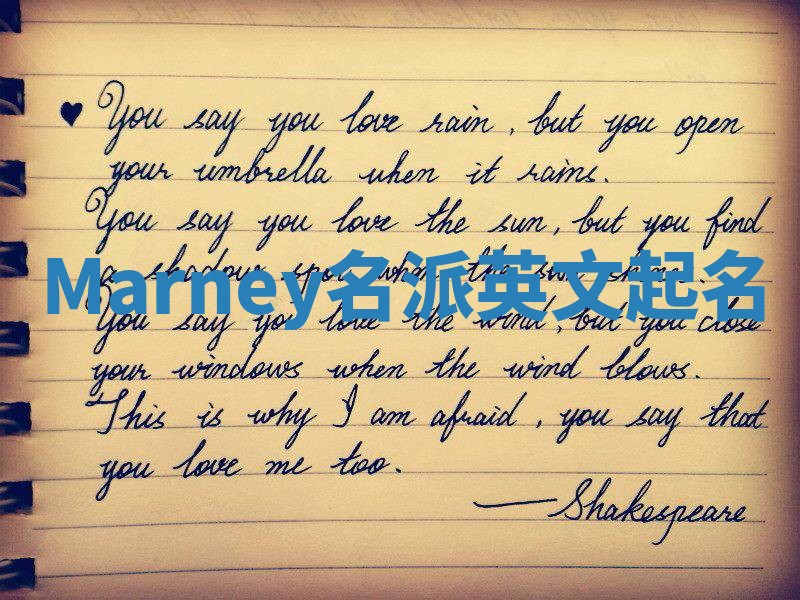 ♥ You say you love rain, but you open
your umbrella when it rains.
You say you love the sun, but you find
a shadow spot when the sun shines.
Marney名派英文起名
You say you love the wind, but you close
your windows when the wind blows.
This is why I am afraid, you say that
you love me too.
—Shakespeare